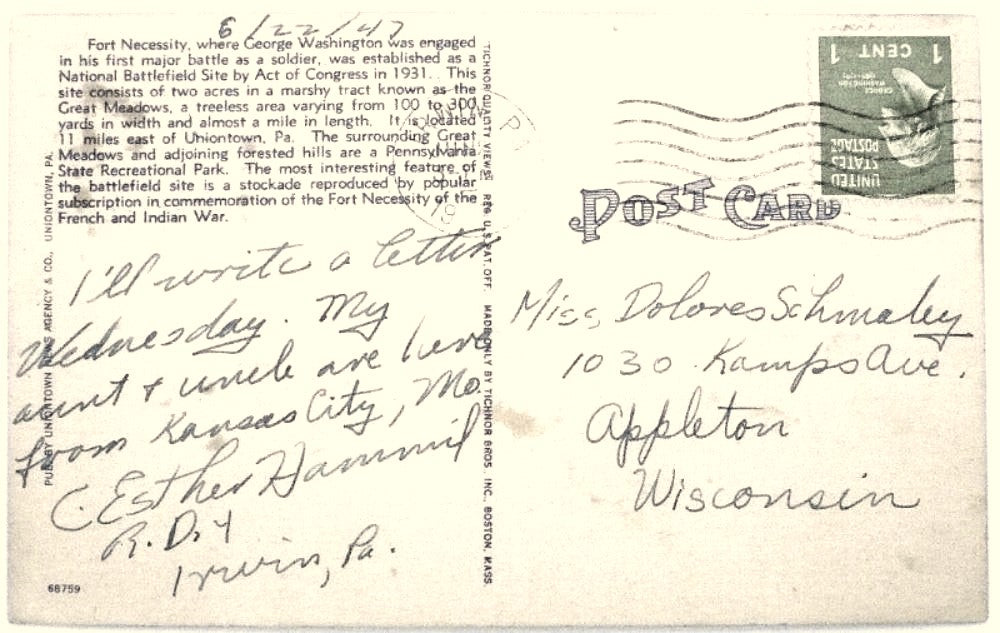 6/22/47
Fort Necessity, where George Washington was engaged
in his first major battle as a soldier, was established as a
National Battlefield Site by Act of Congress in 1931. This
site consists of two acres in a marshy tract known as the
Great Meadows, a treeless area varying from 100 to 300
yards in width and almost a mile in length. It is located
11 miles east of Uniontown, Pa. The surrounding Great
Meadows and adjoining forested hills are a Pennsylvania
State Recreational Park. The most interesting feature of
the battlefield site is a stockade reproduced by popular
subscription in commemoration of the Fort Necessity of the
French and Indian War.
I'll write a letter
Wednesday. My
aunt + uncle are here
from Kansas City, Mo.
C. Esther Hammil
R.D.4
Irwin, Pa.
68759
PUB. BY UNIONTOWN NEWS AGENCY & CO., UNIONTOWN, PA.
TICHNOR QUALITY VIEWS REG. U.S. PAT. OFF. MADE ONLY BY TICHNOR BROS. INC., BOSTON, MASS.
POST CARD
UNITED
STATES
POSTAGE
GEORGE
WASHINGTON
1 CENT 1
Miss, Dolores Schmaley
1030 Kamps Ave.
Appleton
Wisconsin